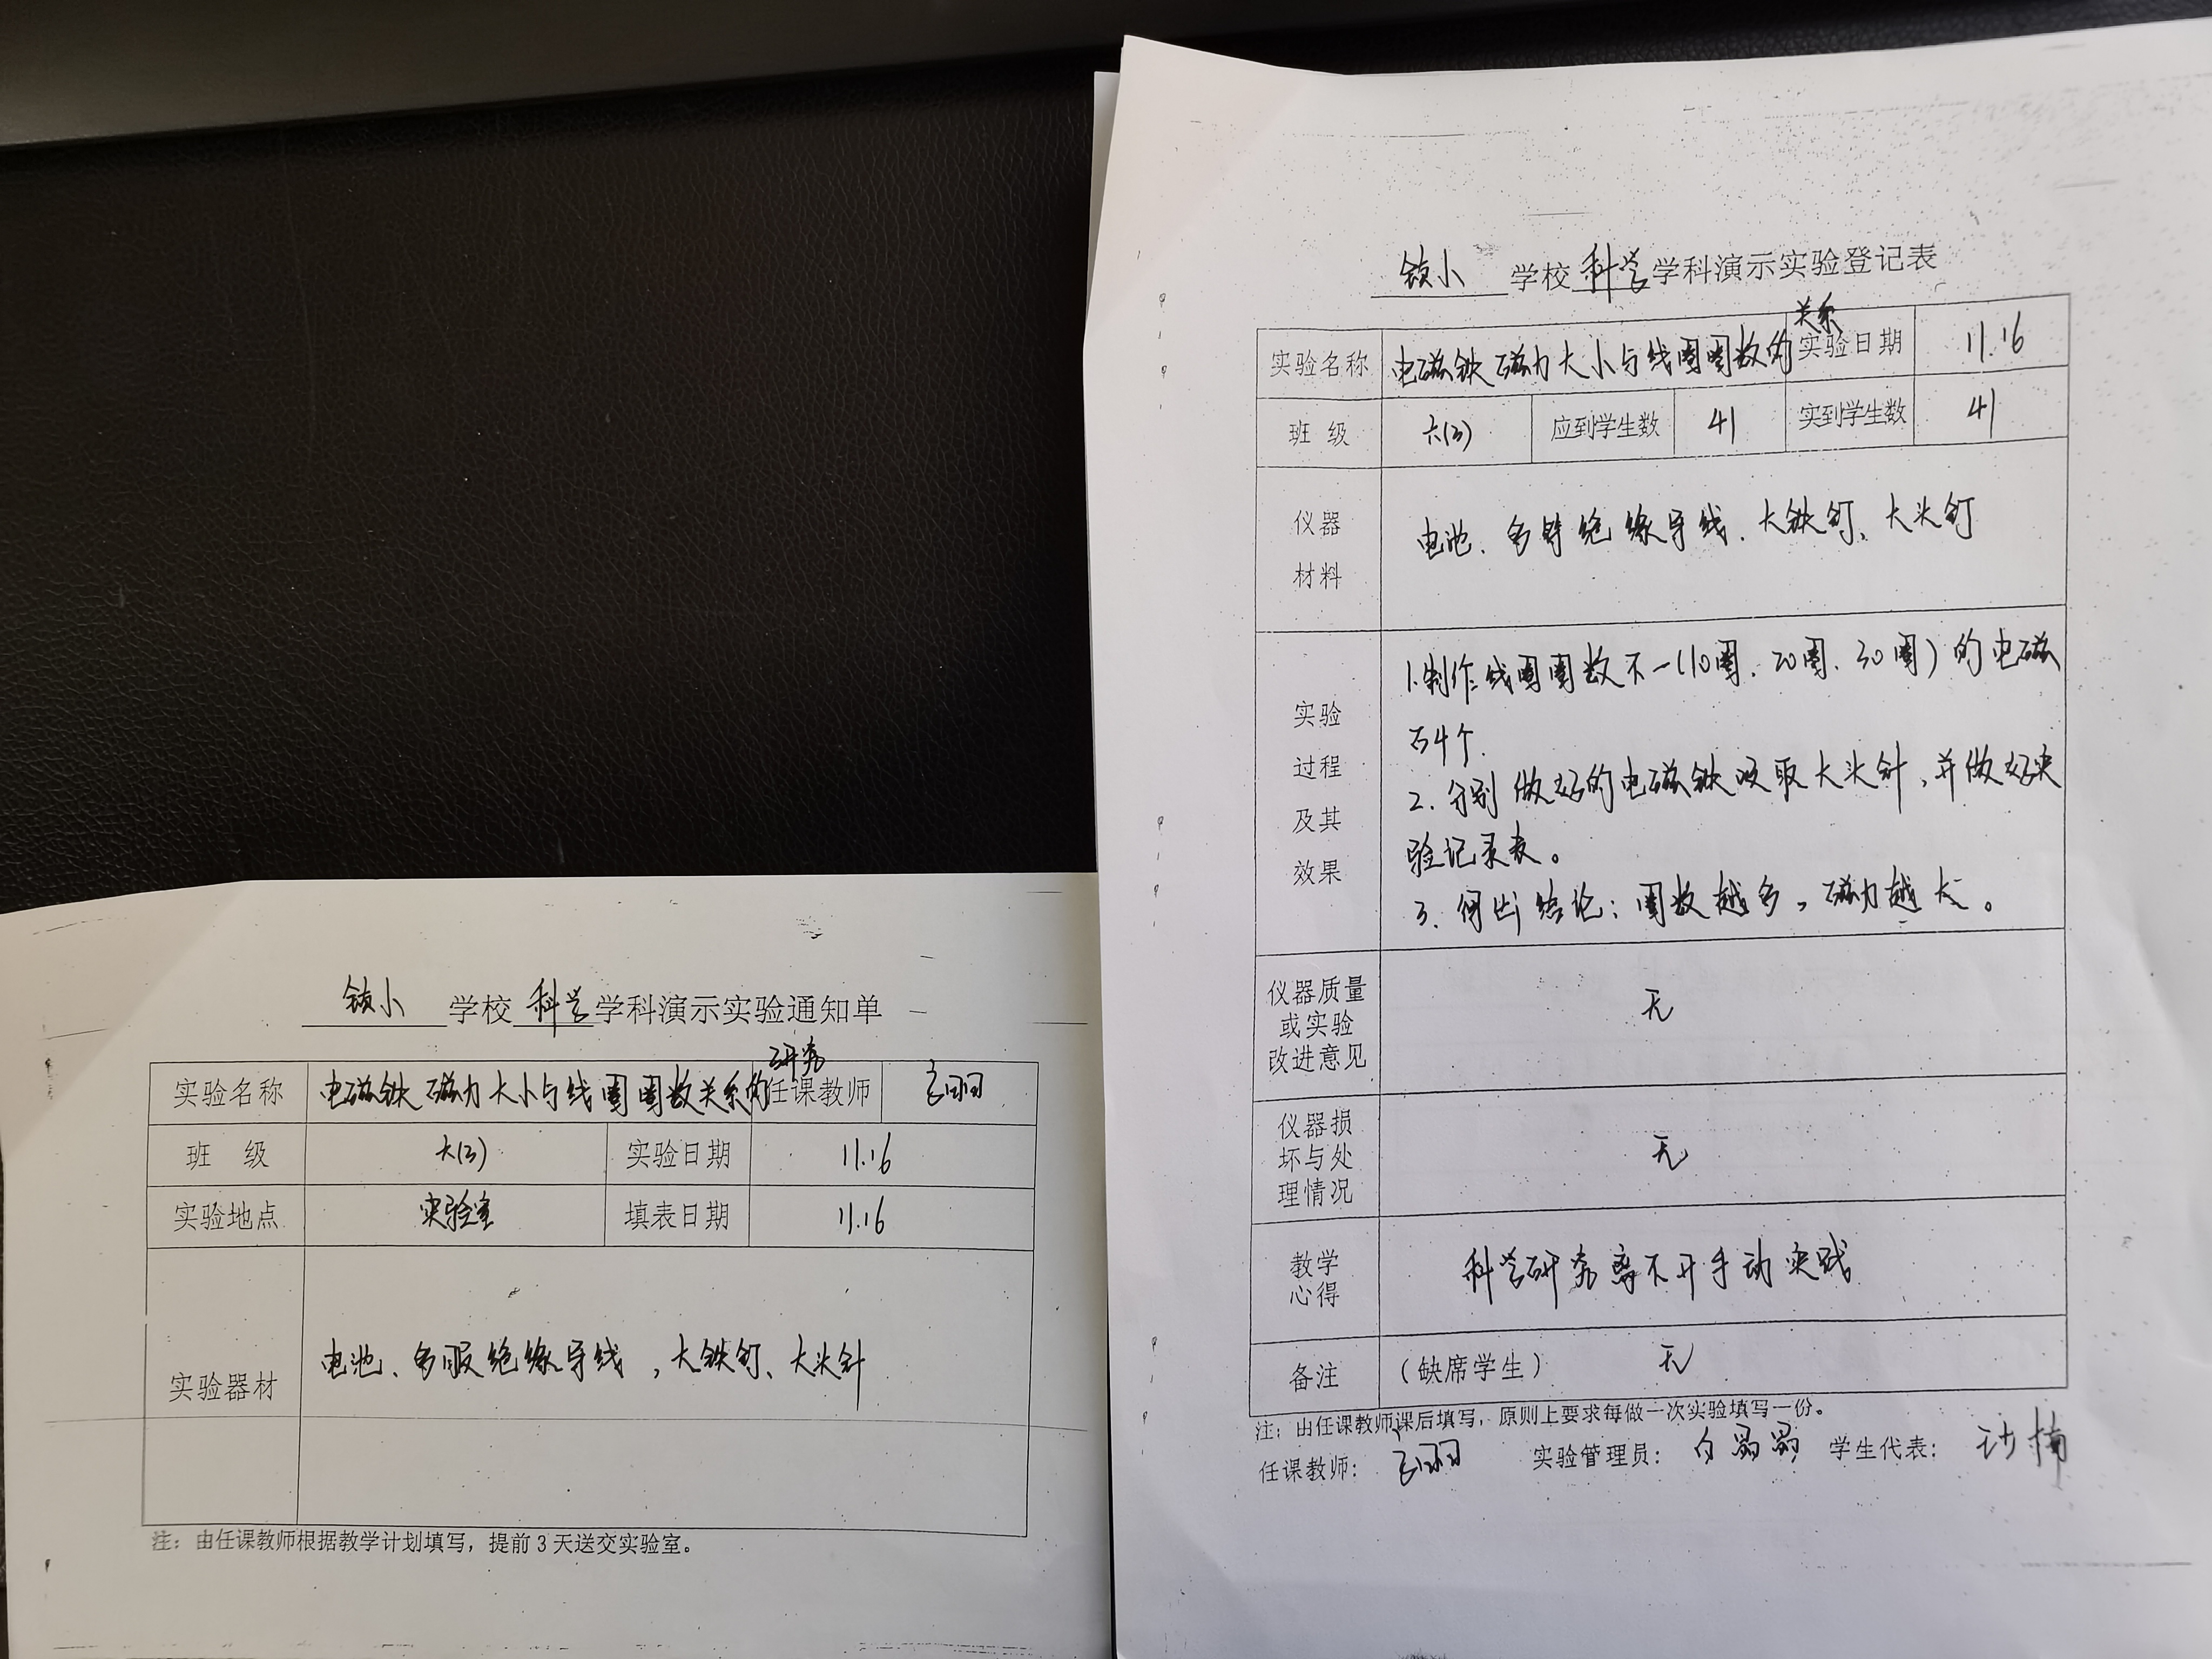 镇小 学校 科学 学科演示实验通知单
实验名称 电磁铁磁力大小与线圈圈数关系的研究 任课教师
班 级 六(3) 实验日期 11.16
实验地点 实验室 填表日期 11.16
实验器材 电池、多股绝缘导线，大铁钉、大头针
注：由任课教师根据教学计划填写，提前3天送交实验室。
镇小 学校 科学 学科演示实验登记表
实验名称 电磁铁磁力大小与线圈圈数的关系 实验日期 11.16
班 级 六(3) 应到学生数 41 实到学生数 41
仪器
材料
电池、多 绝缘导线、大铁钉、大头钉
实验
过程
及其
效果
1.制作线圈圈数不一(10圈、20圈、30圈)的电磁
个.
2.分别做好的电磁铁吸取大头针，并做好实
验记录表。
3.得出结论：圈数越多，磁力越大。
仪器质量
或实验
改进意见
无
仪器损
坏与处
理情况
无
教学
心得
科学研究离不开手动实践
备注 (缺席学生) 无
注：由任课教师课后填写，原则上要求每做一次实验填写一份。
任课教师： 实验管理员： 学生代表：